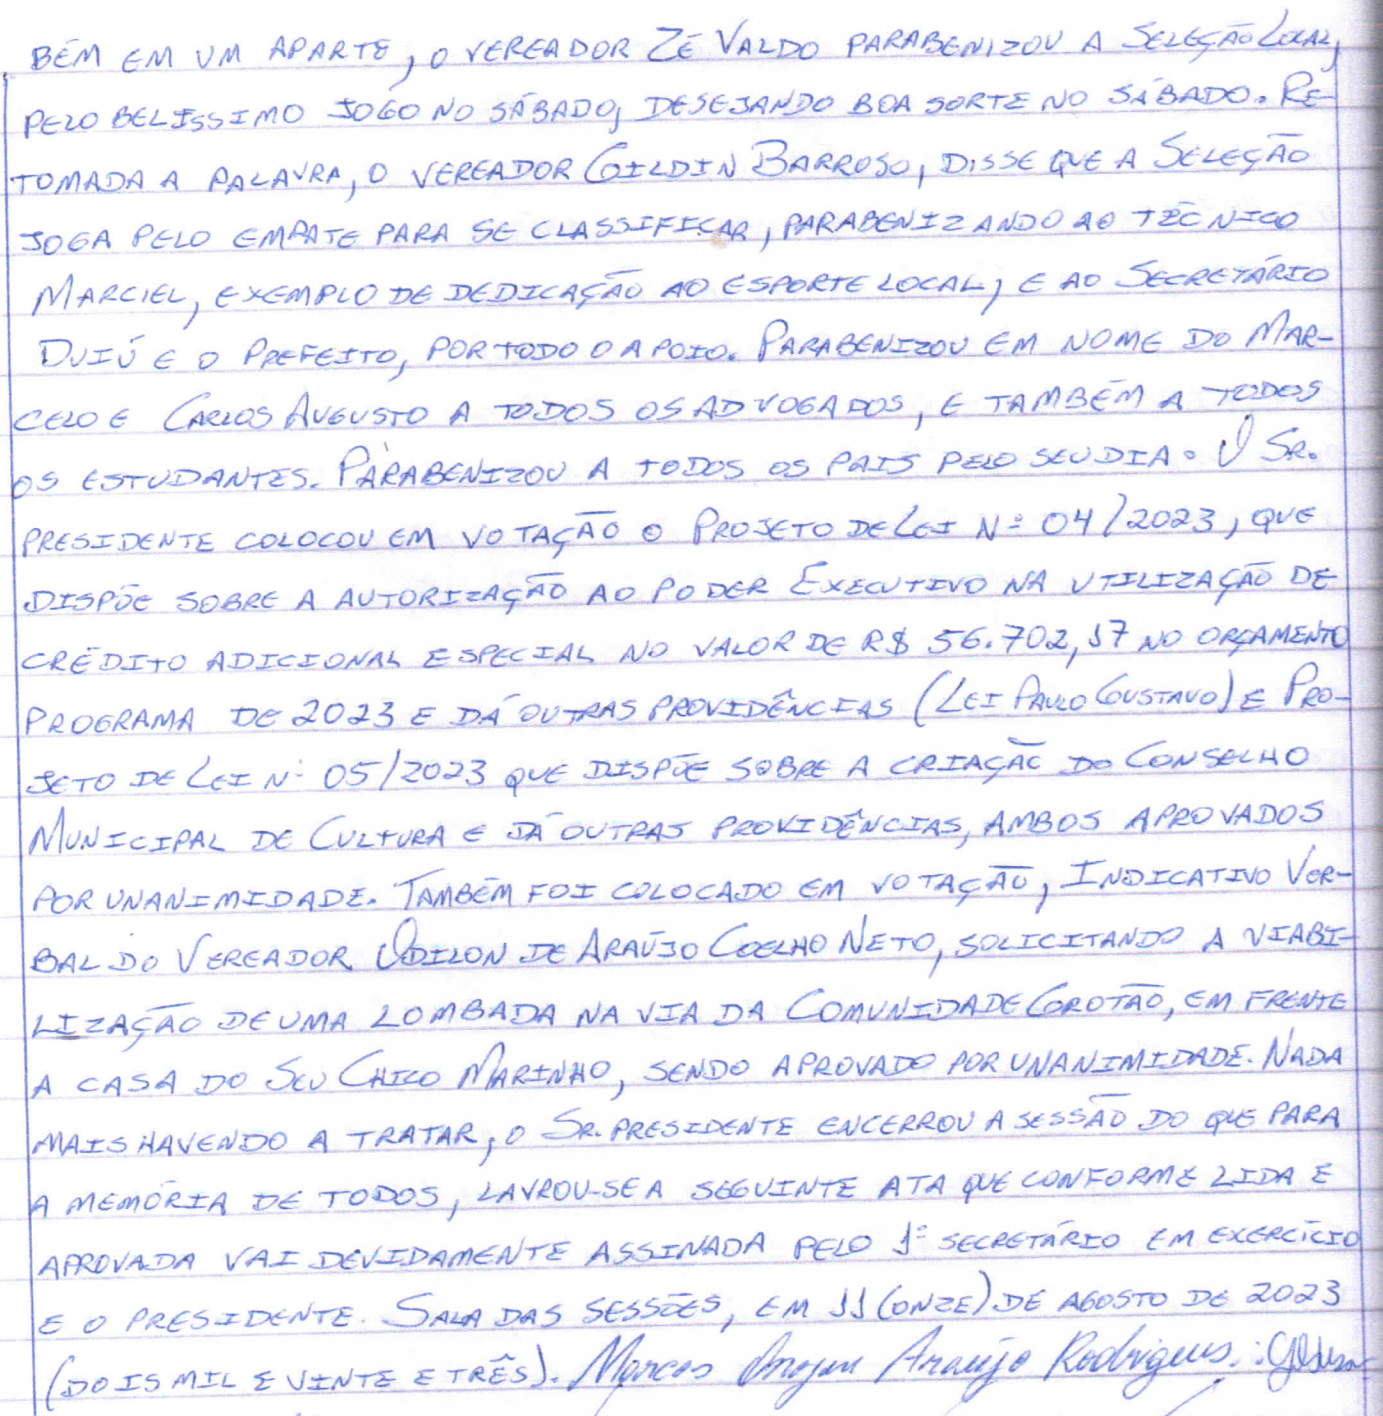 BÉM EM UM APARTE, O VEREADOR ZÉ VALDO PARABENIZOU A SELEÇÃO LOCAL,
PELO BELISSIMO JOGO NO SÁBADO, DESEJANDO BOA SORTE NO SÁBADO. RE-
TOMADA A PALAVRA, O VEREADOR GILDIN BARROSO, DISSE QUE A SELEÇÃO
JOGA PELO EMPATE PARA SE CLASSIFICAR, PARABENIZANDO AO TÉCNICO
MARCIEL, EXEMPLO DE DEDICAÇÃO AO ESPORTE LOCAL, E AO SECRETÁRIO
DUIÚ E O PREFEITO, POR TODO O APOIO. PARABENIZOU EM NOME DO MAR-
CELO E CARLOS AUGUSTO A TODOS OS ADVOGADOS, E TAMBÉM A TODOS
OS ESTUDANTES. PARABENIZOU A TODOS OS PAIS PELO SEU DIA. O SR.
PRESIDENTE COLOCOU EM VOTAÇÃO O PROJETO DE LEI Nº 04/2023, QUE
DISPÕE SOBRE A AUTORIZAÇÃO AO PODER EXECUTIVO NA UTILIZAÇÃO DE
CRÉDITO ADICIONAL ESPECIAL NO VALOR DE R$ 56.702,17 NO ORÇAMENTO
PROGRAMA DE 2023 E DÁ OUTRAS PROVIDÊNCIAS (LEI PAULO GUSTAVO) E PRO-
JETO DE LEI Nº 05/2023 QUE DISPÕE SOBRE A CRIAÇÃO DO CONSELHO
MUNICIPAL DE CULTURA E DÁ OUTRAS PROVIDÊNCIAS, AMBOS APROVADOS
POR UNANIMIDADE. TAMBÉM FOI COLOCADO EM VOTAÇÃO, INDICATIVO VER-
BAL DO VEREADOR ODILON DE ARAÚJO COELHO NETO, SOLICITANDO A VIABI-
LIZAÇÃO DE UMA LOMBADA NA VIA DA COMUNIDADE GROTÃO, EM FRENTE
A CASA DO SEU CHICO MARINHO, SENDO APROVADO POR UNANIMIDADE. NADA
MAIS HAVENDO A TRATAR, O SR. PRESIDENTE ENCERROU A SESSÃO DO QUE PARA
A MEMÓRIA DE TODOS, LAVROU-SE A SEGUINTE ATA QUE CONFORME LIDA E
APROVADA VAI DEVIDAMENTE ASSINADA PELO 1º SECRETÁRIO EM EXERCÍCIO
E O PRESIDENTE. SALA DAS SESSÕES, EM 11 (ONZE) DE AGOSTO DE 2023
(DOIS MIL E VINTE E TRÊS). Marcos Araújo Rodrigues.